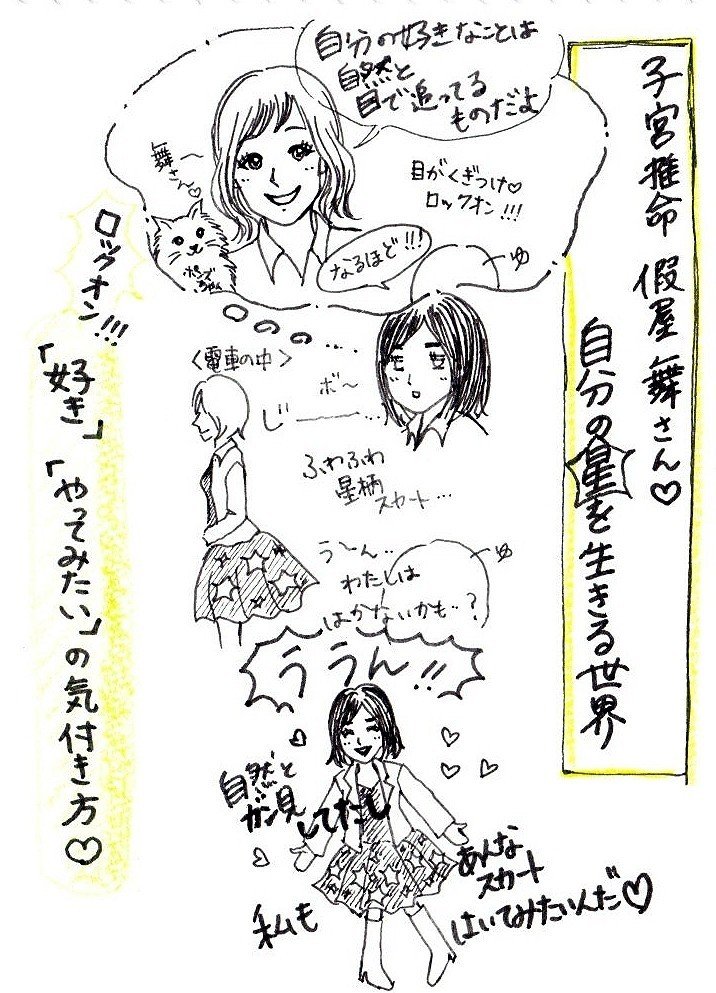 子宮推命 假屋舞さん♡
自分の星を生きる世界
自分の好きなことは
自然と
目で追ってる
ものだよ
舞〜
さん♡
目がくぎつけ♡
ロックオン!!!
なるほど!!!
ゆ
ロックオン!!!
「好き」
「やってみたい」の気付き方♡
〈電車の中〉
ボ〜
じー…
ふわふわ
星柄
スカート…
ゆ
う〜ん…
わたしは
はかないかも…?
ううん!!
自然と
ガン見してたし
私も
あんな
スカート
はいてみたいんだ♡